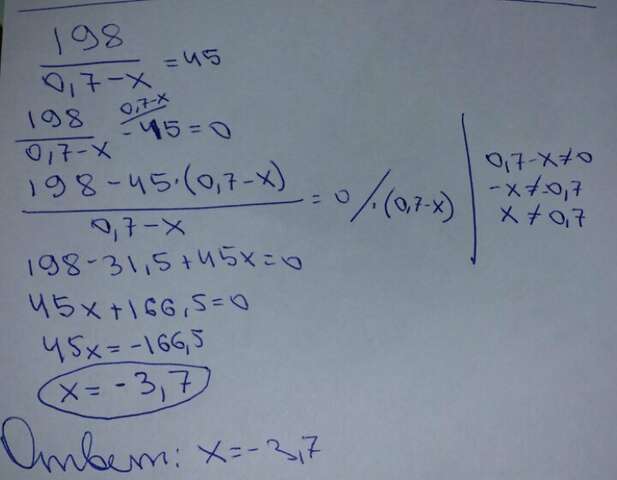 198/(0,7-x) = 45
198/(0,7-x) - 45 = 0 0,7-x
(198-45·(0,7-x))/(0,7-x) = 0 /·(0,7-x)
198-31,5+45x=0
45x+166,5=0
45x=-166,5
x=-3,7
Ответ: x=-3,7
0,7-x≠0
-x≠-0,7
x≠0,7